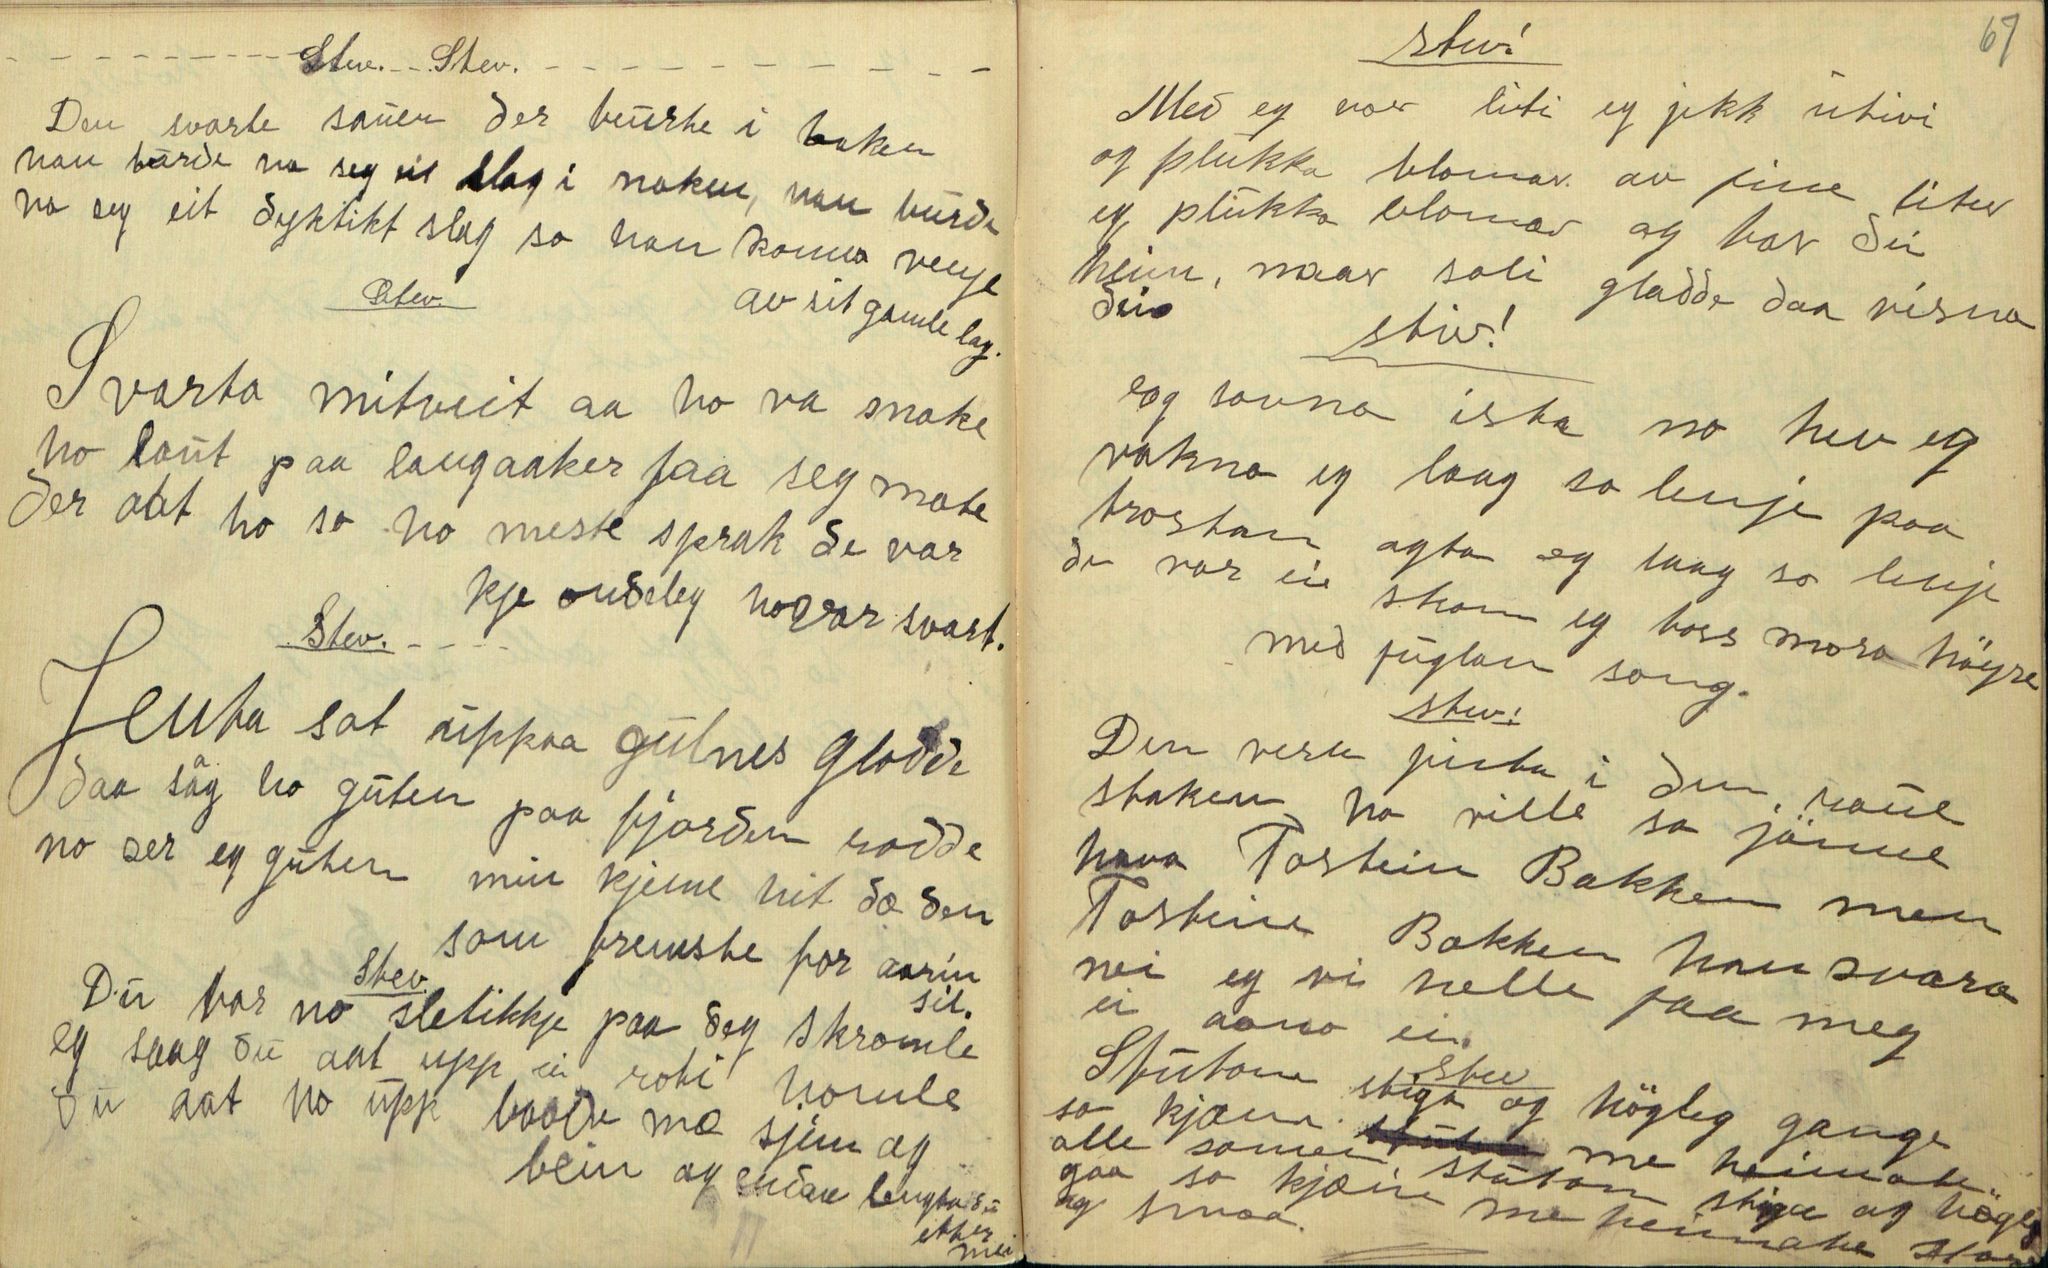 Stev. Stev.
Den svarte sauen der beurste i baken
han burde ha seg eit slag i naken, han burde
ha seg eit dyktikt slag so han komma venje
av sit gamle lag.
Stev.
Svarta mitveit aa ho va snake
ho laut paa langaaker faa seg make
der aat ho so ho meste sprak de var
kje ondeleg ho var svart.
Stev.
Jenta sat uppaa gulnes gladde
daa såg ho guten paa fjorden rodde
no ser eg guten min kjeme hit dæ den
som fremste for aarin
sit.
Stev
Du har no sletikkje paa deg skromle
eg saag du aat upp ei roti homle
du aat ho upp baade mæ sjin og
bein og endaa lengta du
etter
mei
67
stev!
Med eg var liti eg jekk utivi
og plukka blomar av fine liter
eg plukka blomar og bar dei
heim, naar soli gladde daa visna
dei
stev!
eg sovna ista no hev eg
vakna eg laag so lenje paa
trostan agta eg laag so lenje
de var ei skam eg hoss mora högre
med fuglan song.
stev!
Den vesle jinta i den raue
staken ho ville so jönne
hava Tostein Bakken men
Tostein Bakken han svara
nei eg vi helle faa meg
ei aano ei.
Stev
Stutane stiga og högleg gange
so kjæne me heimate
alle saman stutan stiga og högleg
gaa so kjæine me heimate
og smaa.